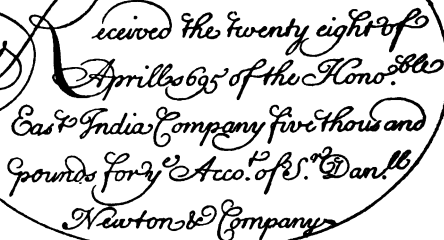 Received the twenty eight of
Aprill 1695 of the Hono.ble
East India Company five thousand
pounds for ye Acco.t of S.r Dan.ll
Newton & Company